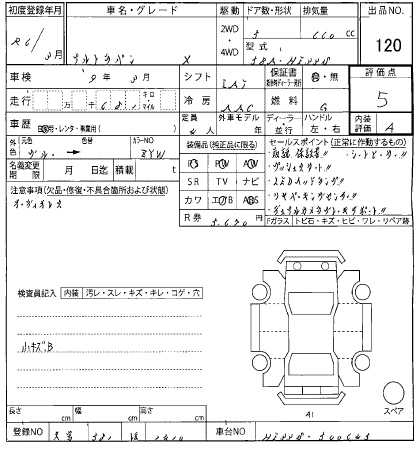 初度登録年月 車名・グレード 駆動 ドア数・形状 排気量 出品NO.
R6/ 3月 アルトラパン X 2WD・4WD 5 660 cc 120
型式
車検 9年 3月 シフト IAT 保証書 有・無 評価点
走行 万 千 キロ・マイル 冷房 AAC 燃料 G 5
車歴 自家用・レンタ・事業用( ) 定員 4人 外車モデル ディーラー・並行 ハンドル 左・右 内装評価 A
外色 元色 色替 カラーNO
ブルー ZYW
装備品(純正品に限る) セールスポイント(正常に作動するもの)
名義変更期限 月 日迄 積載 t
PS PW AW
SR TV ナビ
カワ エアB ABS
R券 5,670円
注意事項(欠品・修復・不具合箇所および状態)
取説、保証書!! シートヒーター!!
プッシュスタート!!
LEDヘッドランプ!!
リヤパーキングセンサー!!
デュアルカメラブレーキサポート!!
Fガラス トビ石・キズ・ヒビ・ワレ・リペア跡
検査員記入 内装 汚レ・スレ・キズ・キレ・コゲ・穴
小キズ.B
A1
スペア
長さ cm 幅 cm 高さ cm
登録NO 車台NO